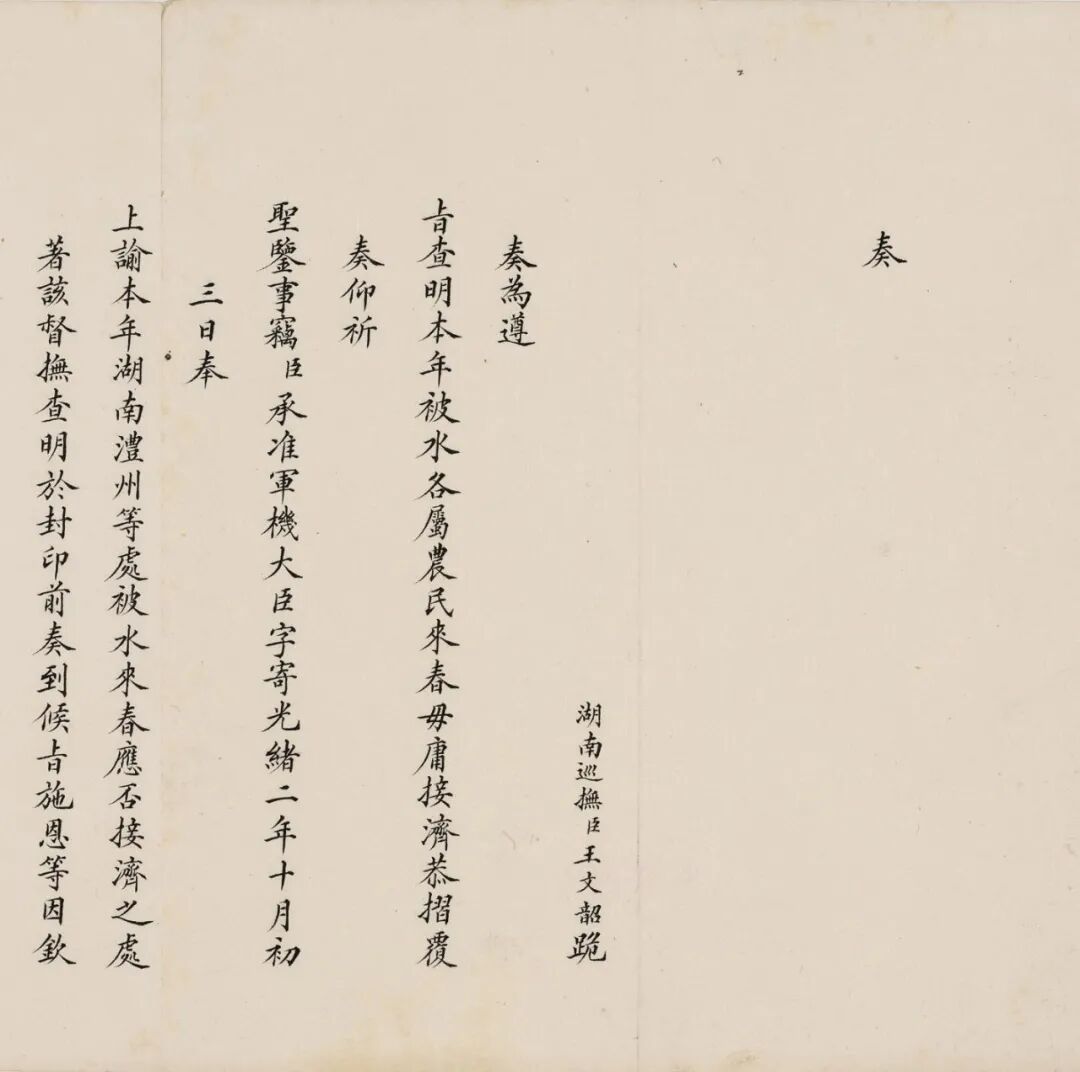 奏
湖南巡撫臣王文韶跪
奏為遵
旨查明本年被水各屬農民來春毋庸接濟恭摺覆
奏仰祈
聖鑒事竊臣承准軍機大臣字寄光緒二年十月初
三日奉
上諭本年湖南澧州等處被水來春應否接濟之處
著該督撫查明於封印前奏到候旨施恩等因欽